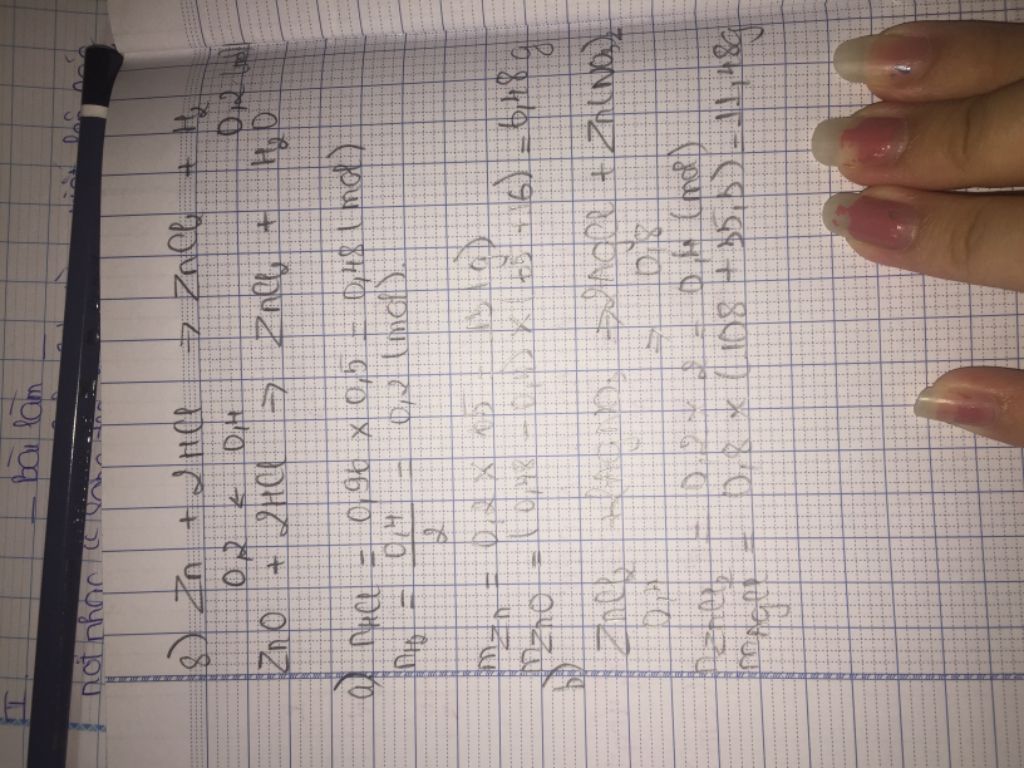 I - bài làm
8) Zn + 2HCl => ZnCl2 + H2
0,2 < 0,4 0,2 (mol)
ZnO + 2HCl => ZnCl2 + H2O
a) nHCl = 0,96 x 0,5 = 0,48 (mol)
= 0,4/2 = 0,2 (mol)
mZn = 0,2 x 65 = 13 (g)
mZnO = (0,48 - 0,4) x ( + 16) = 6,48 g
b)
ZnCl2 + 2AgNO3 -> 2AgCl + Zn(NO3)2
0,4 => 0,8
nZnCl2 = 0,2 x 2 = 0,4 (mol)
mAgCl = 0,8 x (108 + 35,5) = 11,48g